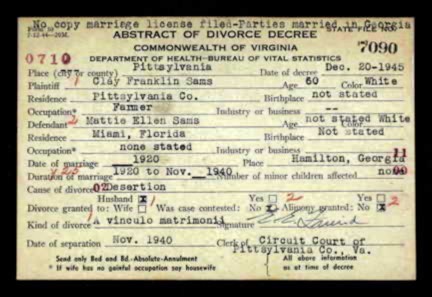 No copy marriage license filed-Parties married in Georgia
ABSTRACT OF DIVORCE DECREE STATE FILE NO.
COMMONWEALTH OF VIRGINIA 7090
0710 DEPARTMENT OF HEALTH—BUREAU OF VITAL STATISTICS
Place (city or county) Pittsylvania Date of decree Dec. 20-1945
Plaintiff 1 Clay Franklin Sams Age 60 Color White
Residence Pittsylvania Co. Birthplace not stated
Occupation* Farmer Industry or business --
Defendant 2 Mattie Ellen Sams Age not stated Color White
Residence Miami, Florida Birthplace Not stated
Occupation* none stated Industry or business
Date of marriage 1920 Place Hamilton, Georgia 11
Duration of marriage 1920 to Nov. 1940 Number of minor children affected none
Cause of divorce 02 Desertion
Husband X Yes 2 Yes
Divorce granted to: Wife 1 Was case contested: No X Alimony granted: No X 2
Kind of divorce A vinculo matrimonii Signature
Date of separation Nov. 1940 Clerk of Circuit Court of
Pittsylvania Co., Va.
Send only Bed and Bd.-Absolute-Annulment All above information
* If wife has no gainful occupation say housewife as at time of decree